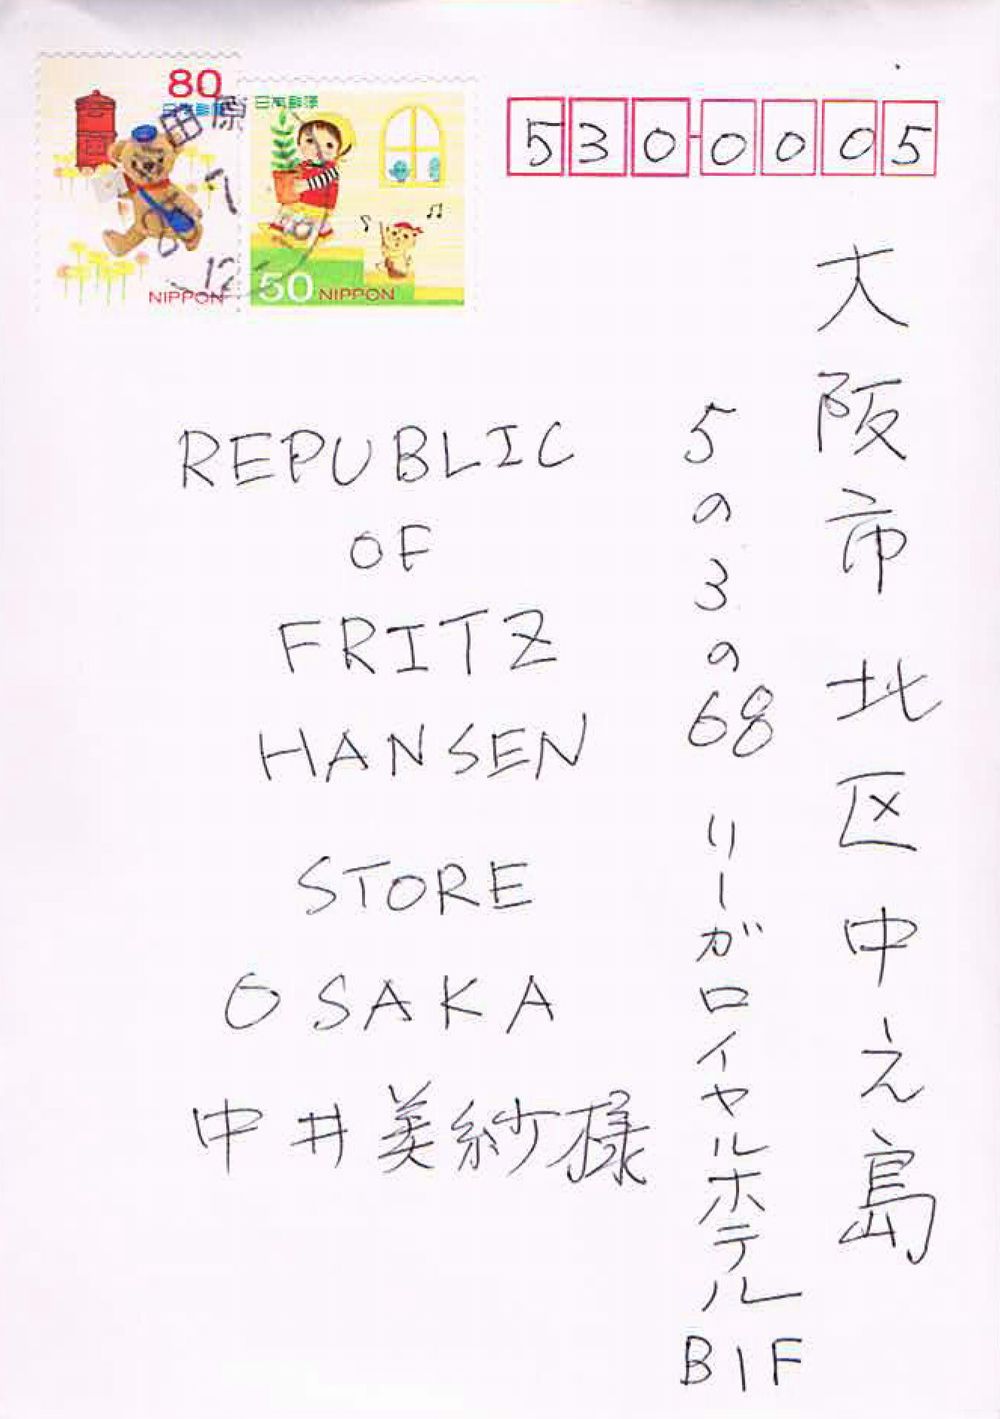 80
日本郵便
NIPPON
日本郵便
50 NIPPON
田原
7
12
530-0005
大阪市北区中え島
5の3の68 リーガロイヤルホテル B1F
REPUBLIC
OF
FRITZ
HANSEN
STORE
OSAKA
中井美紗様